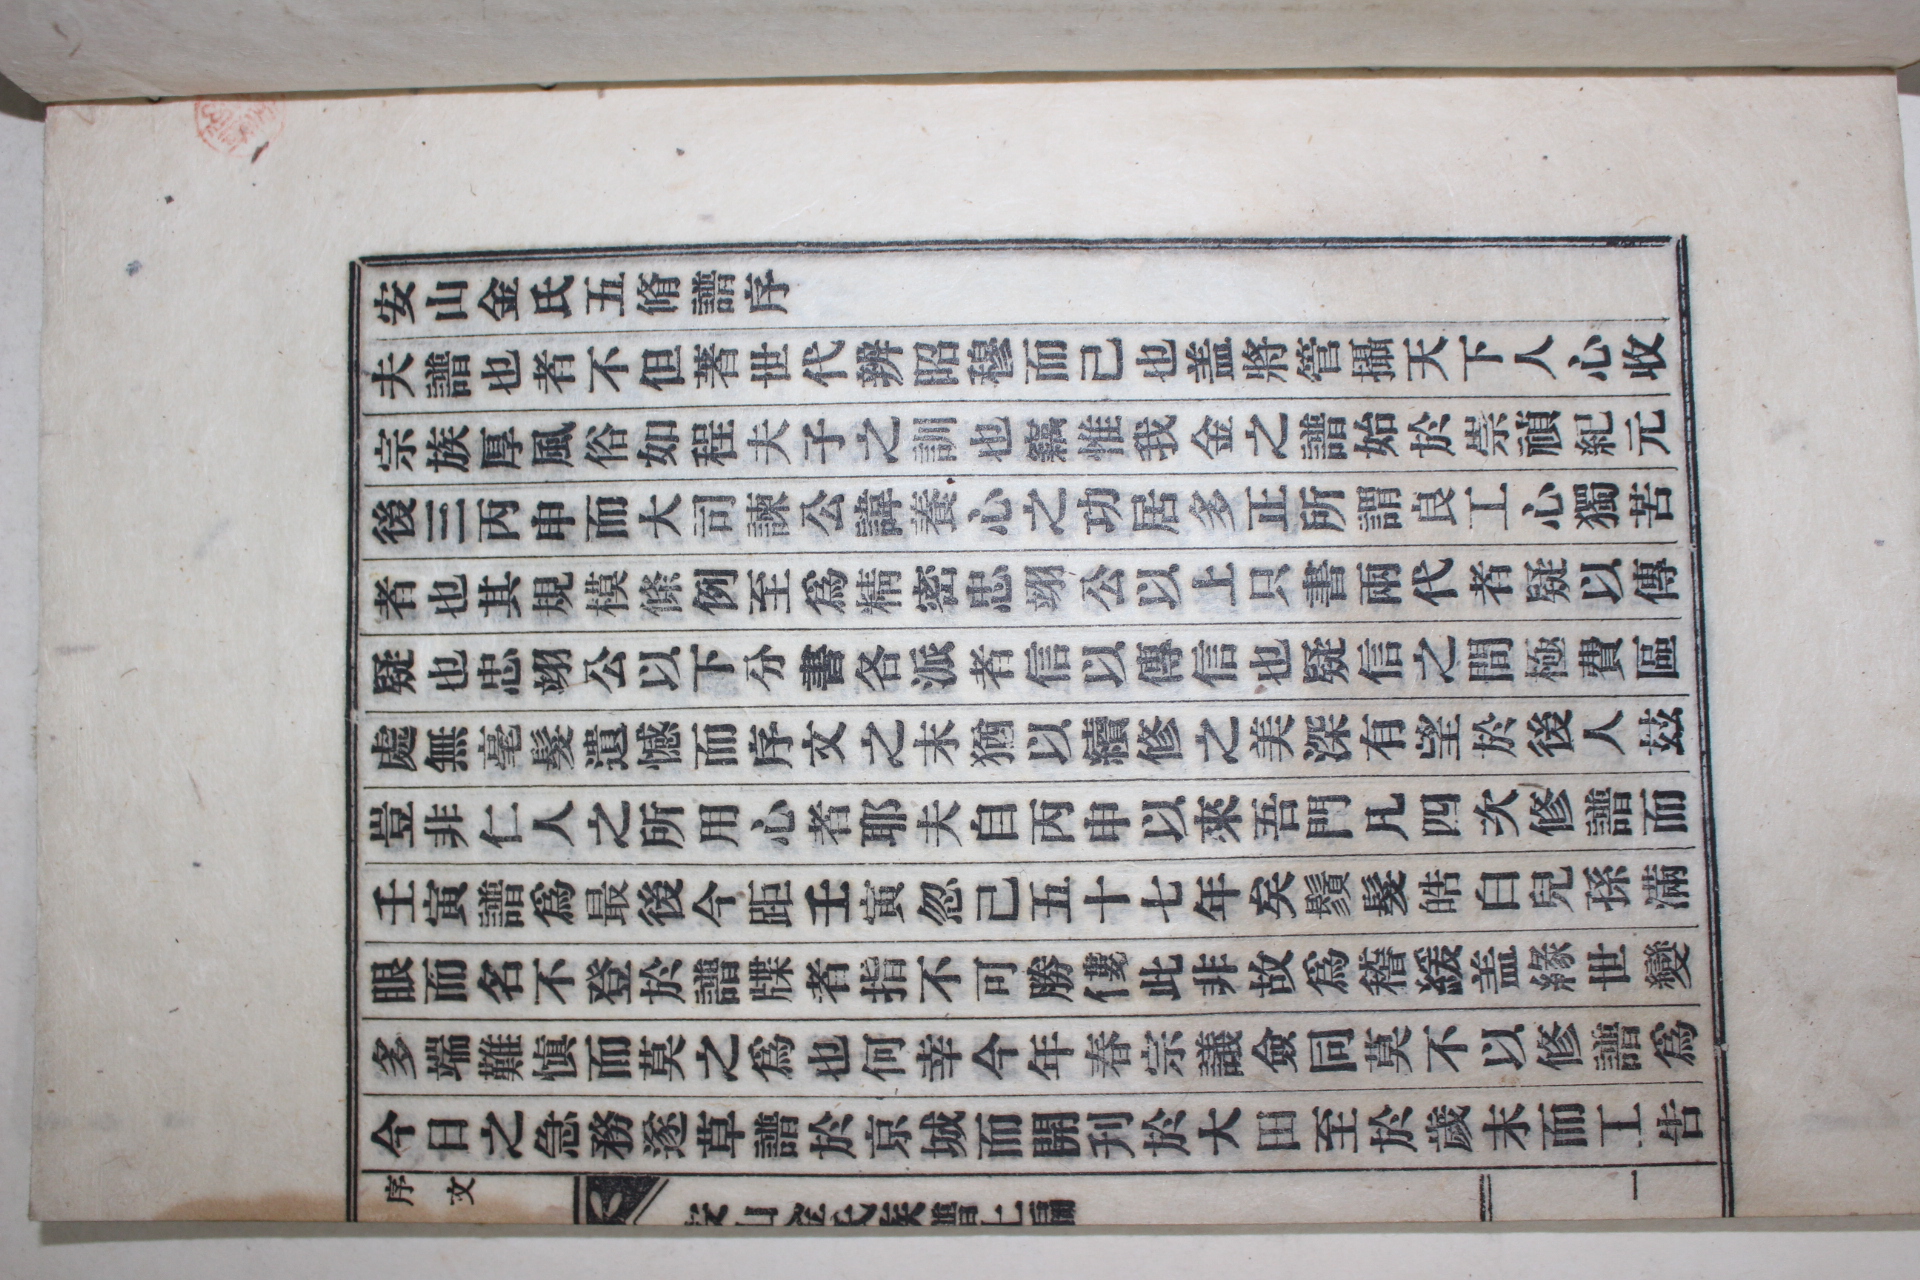 安山金氏五脩譜序
夫譜也者不但著世代辨昭穆而已也盖將管攝天下人心收
宗族厚風俗如程夫子之訓也竊惟我金之譜始於崇禎紀元
後三丙申而大司諫公諱養心之功居多正所謂良工心獨苦
者也其規模條例至爲精密忠翊公以上只書兩代者疑以傳
疑也忠翊公以下分書各派者信以傳信也疑信之間極費區
處無毫髮遺憾而序文之末猶以續修之美深有望於後人玆
豈非仁人之所用心者耶夫自丙申以來吾門凡四次修譜而
壬寅譜爲最後今距壬寅忽已五十七年矣鬚髮皓白兒孫滿
眼而名不登於譜牒者指不可勝僂此非故爲稽緩盖緣世變
多端難愼而莫之爲也何幸今年春宗議僉同莫不以修譜爲
今日之急務遂草譜於京城而開刊於大田至於歲末而工告
序文 一
安山金氏族譜